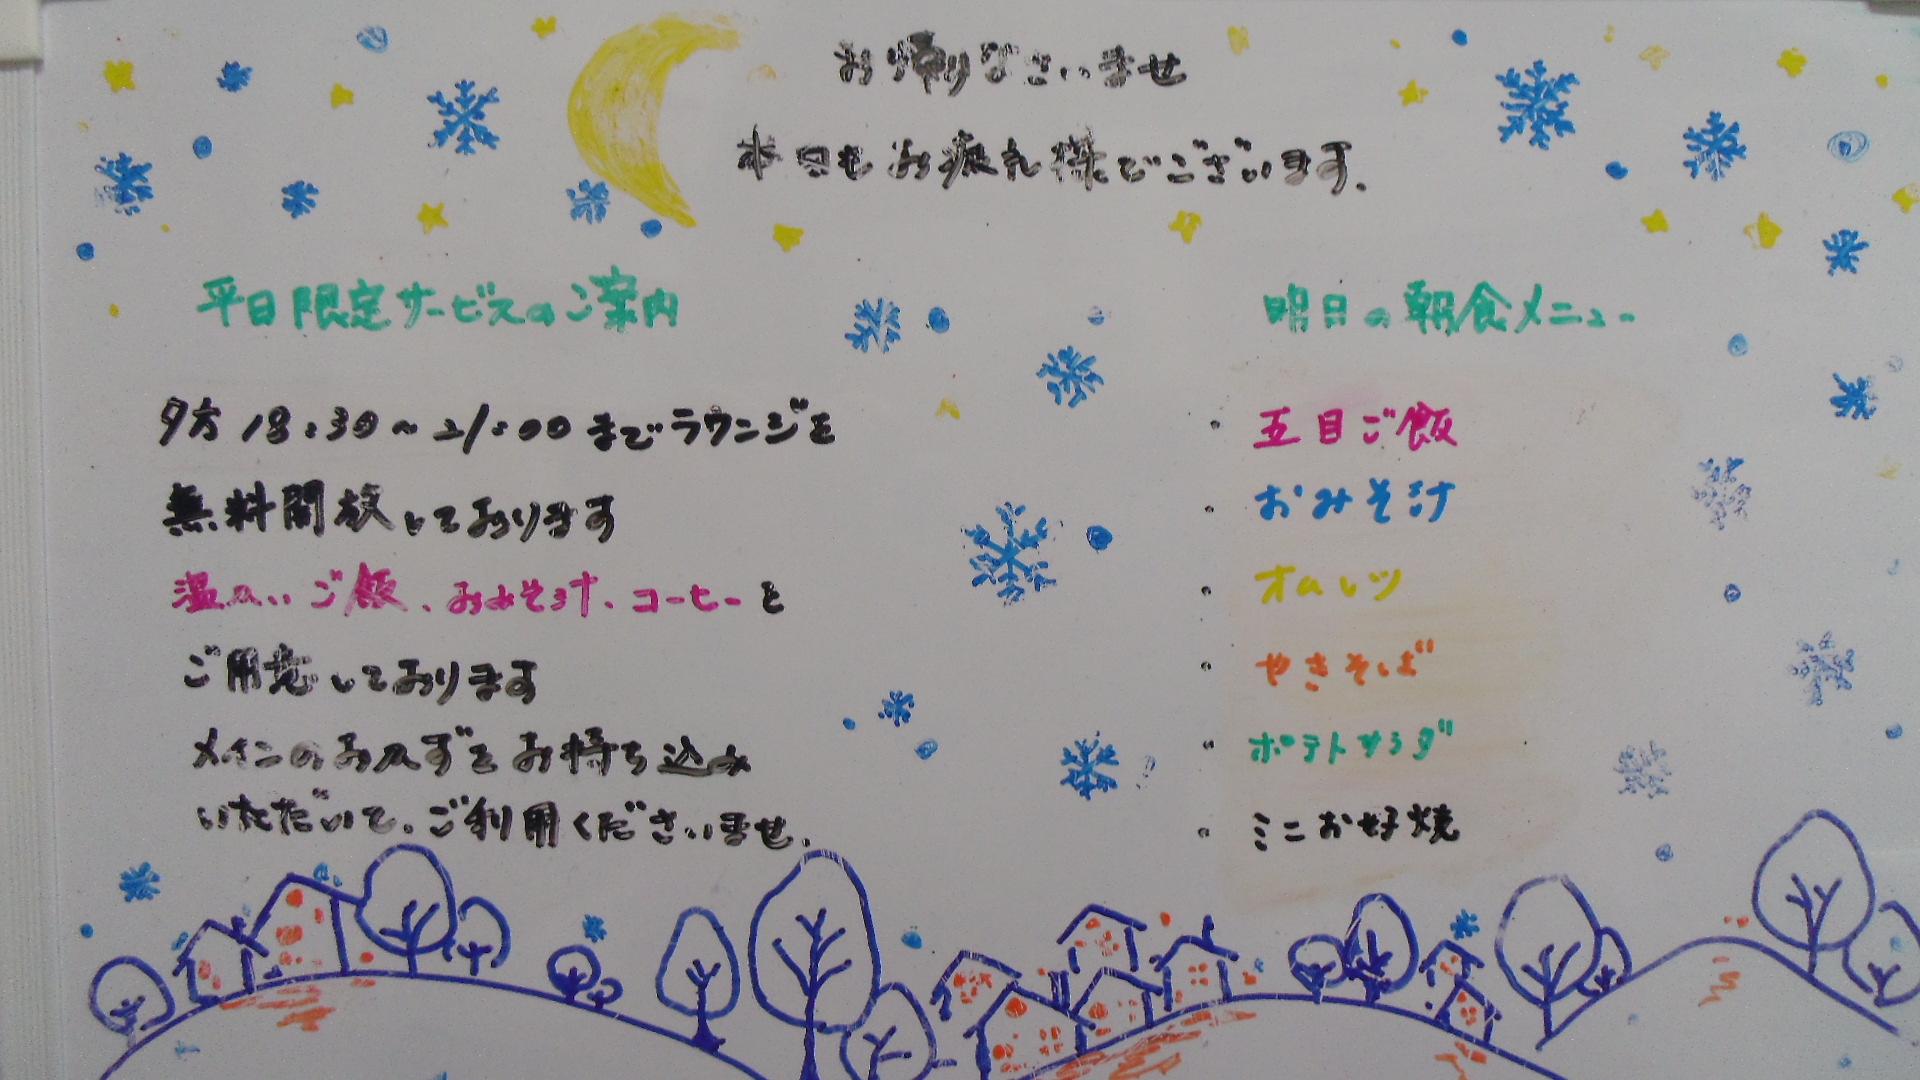 お帰りなさいませ
本日もお疲れ様でございます.
平日限定サービスのご案内
夕方 18:30～21:00 までラウンジを
無料開放しております
温かいご飯、おみそ汁、コーヒーを
ご用意しております
メインのおかずをお持ち込み
いただいて、ご利用くださいませ.
明日の朝食メニュー
・ 五目ご飯
・ おみそ汁
・ オムレツ
・ やきそば
・ ポテトサラダ
・ ミニお好焼